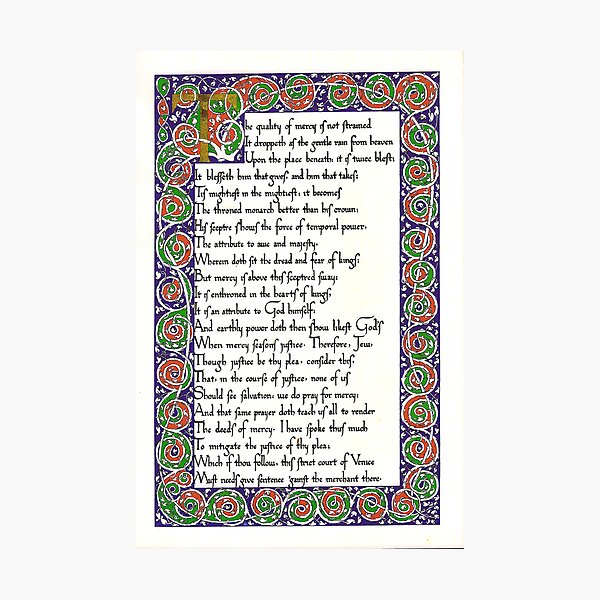 The quality of mercy is not strained
It droppeth as the gentle rain from heaven
Upon the place beneath: it is twice blest;
It blesseth him that gives and him that takes:
Tis mightiest in the mightiest: it becomes
The throned monarch better than his crown;
His sceptre shows the force of temporal power,
The attribute to awe and majesty,
Wherein doth sit the dread and fear of kings;
But mercy is above this sceptred sway;
It is enthroned in the hearts of kings,
It is an attribute to God himself;
And earthly power doth then show likest God's
When mercy seasons justice. Therefore, Jew,
Though justice be thy plea, consider this,
That, in the course of justice, none of us
Should see salvation: we do pray for mercy;
And that same prayer doth teach us all to render
The deeds of mercy. I have spoke thus much
To mitigate the justice of thy plea;
Which if thou follow, this strict court of Venice
Must needs give sentence 'gainst the merchant there.